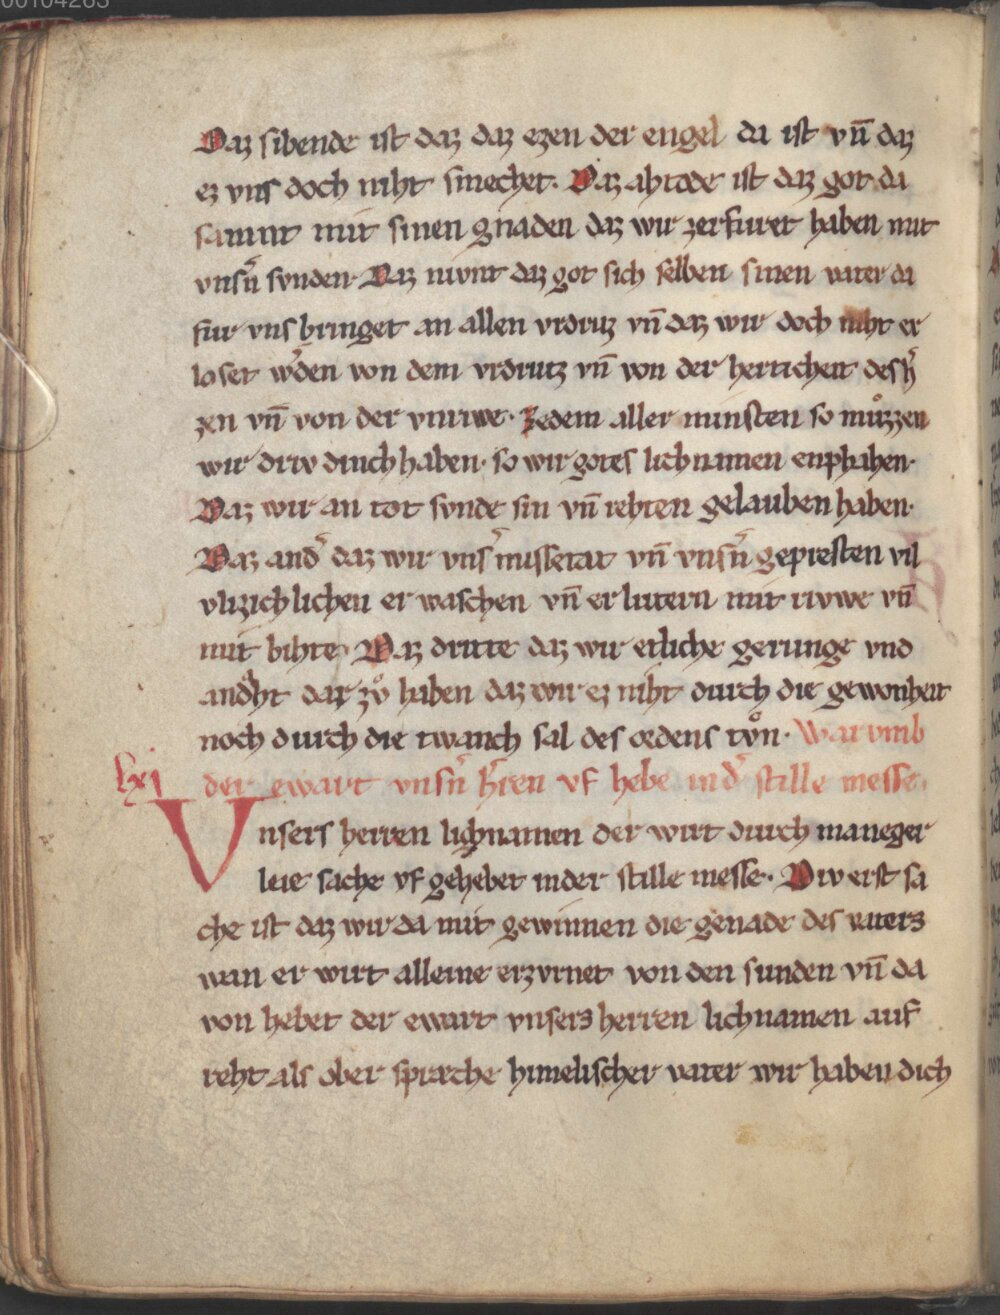 00104263
Daz sibende ist daz daz ezen der engel da ist vn̄ daz
ez vns doch niht smechet. Daz ahtode ist daz got da
samnt mit sinen gnaden daz wir zerfuret haben mit
vnsn̄ svnden. Daz nivnt daz got sich selben sinen vater da
fur vns bringet an allen vrdruz vn̄ daz wir doch niht er
loset wͤden von dem vrdrutz vn̄ von der herticheit des hͤ
zen vn̄ von der vnrwe. Zedem aller minsten so muͦzzen
wir driv dinch haben. so wir gotes lichnamen enphahen.
Daz wir an tot svnde sin vn̄ rehten gelauben haben.
Daz andͤ daz wir vnsͤ missetat vn̄ vnsn̄ gepresten vil
vlizichlichen er waschen vn̄ er livtern mit rivwe vn̄
mit bihte. Daz dritte daz wir etliche gerunge vnd
andaͤht dar zvͦ haben daz wir ez niht durch die gewonheit
noch durch die twanch sal des ordens tvͦn. War vmb
lxj der ewart vnsn̄ hͤren vf hebe in dͤ stille messe.
Vnsers herren lichnamen der wirt durch maneger
leie sache vf gehebet inder stille messe. Div erst sa
che ist daz wir da mit gewinnen die genade des vaters
wan er wirt alleine erzvrnet von den sunden vn̄ da
von hebet der ewart vnsers herren lichnamen auf
reht als ober spreche himelischer vater wir haben dich